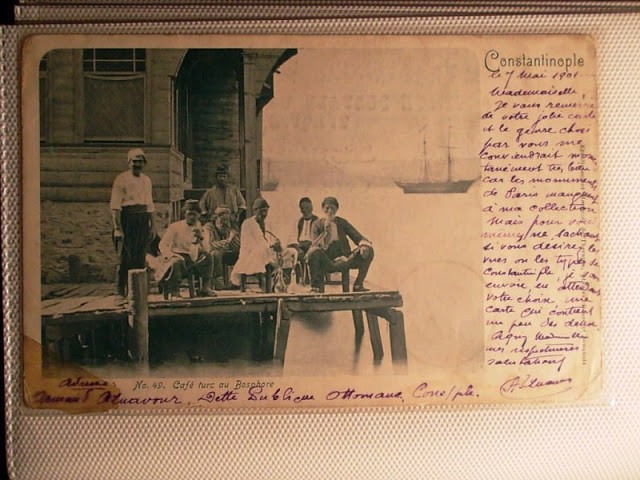 Constantinople
le 7 Mai 1901
Mademoiselle,
Je vous remercie
de votre jolie carte
et le genre choisi
par vous me
conviendrait
car les monuments
de Paris manquent
à ma collection
Mais pour vous
même, ne sachant
si vous désirez les
vues ou les types de
Constantinple, je vous
envoie, en attendant
votre choix, une
carte qui contient
un peu des deux
Agréez Mademoiselle
mes respectueuses
salutations
No. 49. Café turc au Bosphore
Armand Aznavour, Dette Publique Ottomane, Consple.